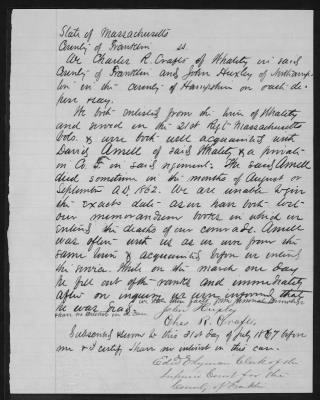 State of Massachusetts
County of Franklin ss.
We Charles R. Crafts of Whately in said
County of Franklin and John Huxley of Northamp-
ton in the County of Hampshire on oath de-
pose & say.
We both enlisted from the town of Whately
and served in the 21st Regt Massachusetts
Vols. & were both well acquainted with
David Amell of said Whately & a private
in Co. in said regiment. The said Amell
died sometime in the months of August or
September A.D. 1862. We are unable to give
the exact date as we have both lost
our memorandum books in which we
entered the deaths of our comrades. Amell
was often with us as we were from the
same town & acquainted before we entered
the service. While on the march one day
he fell out of the ranks and immediately
after on inquiry we were informed that
he was dead.
John Huxley
Chas R. Crafts
Subscribed & sworn to this 31st day of July 1867 before
me & I certify I have no interest in this case.
Clerk of the
Court for the
County of Franklin